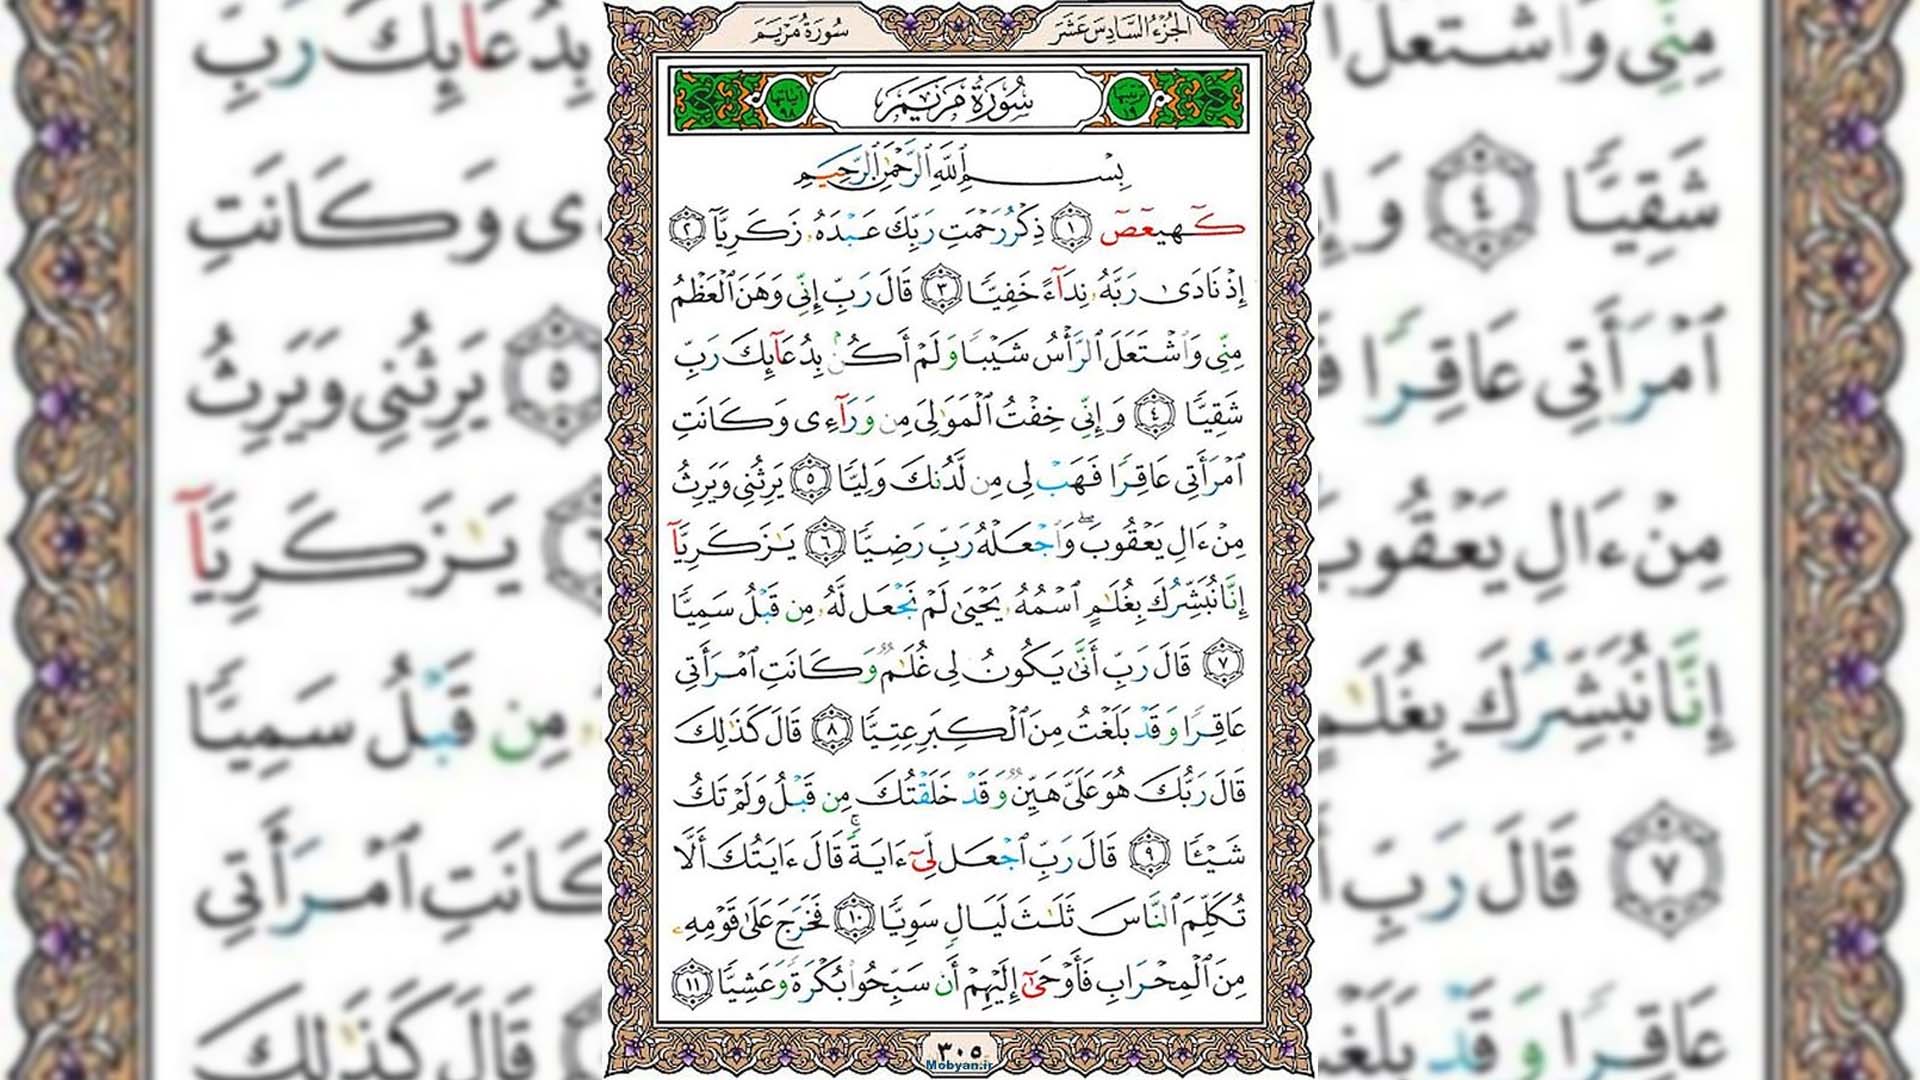 الجزء السادس عشر
سورة مريم
ترتيبها ١٩
سُورَةُ مَرْيَمَ
آياتها ٩٨
بِسْمِ ٱللَّهِ ٱلرَّحْمَٰنِ ٱلرَّحِيمِ
كٓهيعٓصٓ ١ ذِكْرُ رَحْمَتِ رَبِّكَ عَبْدَهُۥ زَكَرِيَّآ ٢
إِذْ نَادَىٰ رَبَّهُۥ نِدَآءً خَفِيًّا ٣ قَالَ رَبِّ إِنِّى وَهَنَ ٱلْعَظْمُ
مِنِّى وَٱشْتَعَلَ ٱلرَّأْسُ شَيْبًا وَلَمْ أَكُنۢ بِدُعَآئِكَ رَبِّ
شَقِيًّا ٤ وَإِنِّى خِفْتُ ٱلْمَوَٰلِىَ مِن وَرَآءِى وَكَانَتِ
ٱمْرَأَتِى عَاقِرًا فَهَبْ لِى مِن لَّدُنكَ وَلِيًّا ٥ يَرِثُنِى وَيَرِثُ
مِنْ ءَالِ يَعْقُوبَ ۖ وَٱجْعَلْهُ رَبِّ رَضِيًّا ٦ يَٰزَكَرِيَّآ
إِنَّا نُبَشِّرُكَ بِغُلَٰمٍ ٱسْمُهُۥ يَحْيَىٰ لَمْ نَجْعَل لَّهُۥ مِن قَبْلُ سَمِيًّا
٧ قَالَ رَبِّ أَنَّىٰ يَكُونُ لِى غُلَٰمٌ وَكَانَتِ ٱمْرَأَتِى
عَاقِرًا وَقَدْ بَلَغْتُ مِنَ ٱلْكِبَرِ عِتِيًّا ٨ قَالَ كَذَٰلِكَ
قَالَ رَبُّكَ هُوَ عَلَىَّ هَيِّنٌ وَقَدْ خَلَقْتُكَ مِن قَبْلُ وَلَمْ تَكُ
شَيْـًٔا ٩ قَالَ رَبِّ ٱجْعَل لِّىٓ ءَايَةً ۚ قَالَ ءَايَتُكَ أَلَّا
تُكَلِّمَ ٱلنَّاسَ ثَلَٰثَ لَيَالٍ سَوِيًّا ١٠ فَخَرَجَ عَلَىٰ قَوْمِهِۦ
مِنَ ٱلْمِحْرَابِ فَأَوْحَىٰٓ إِلَيْهِمْ أَن سَبِّحُوا۟ بُكْرَةً وَعَشِيًّا ١١
٣٠٥
Mobyan.ir